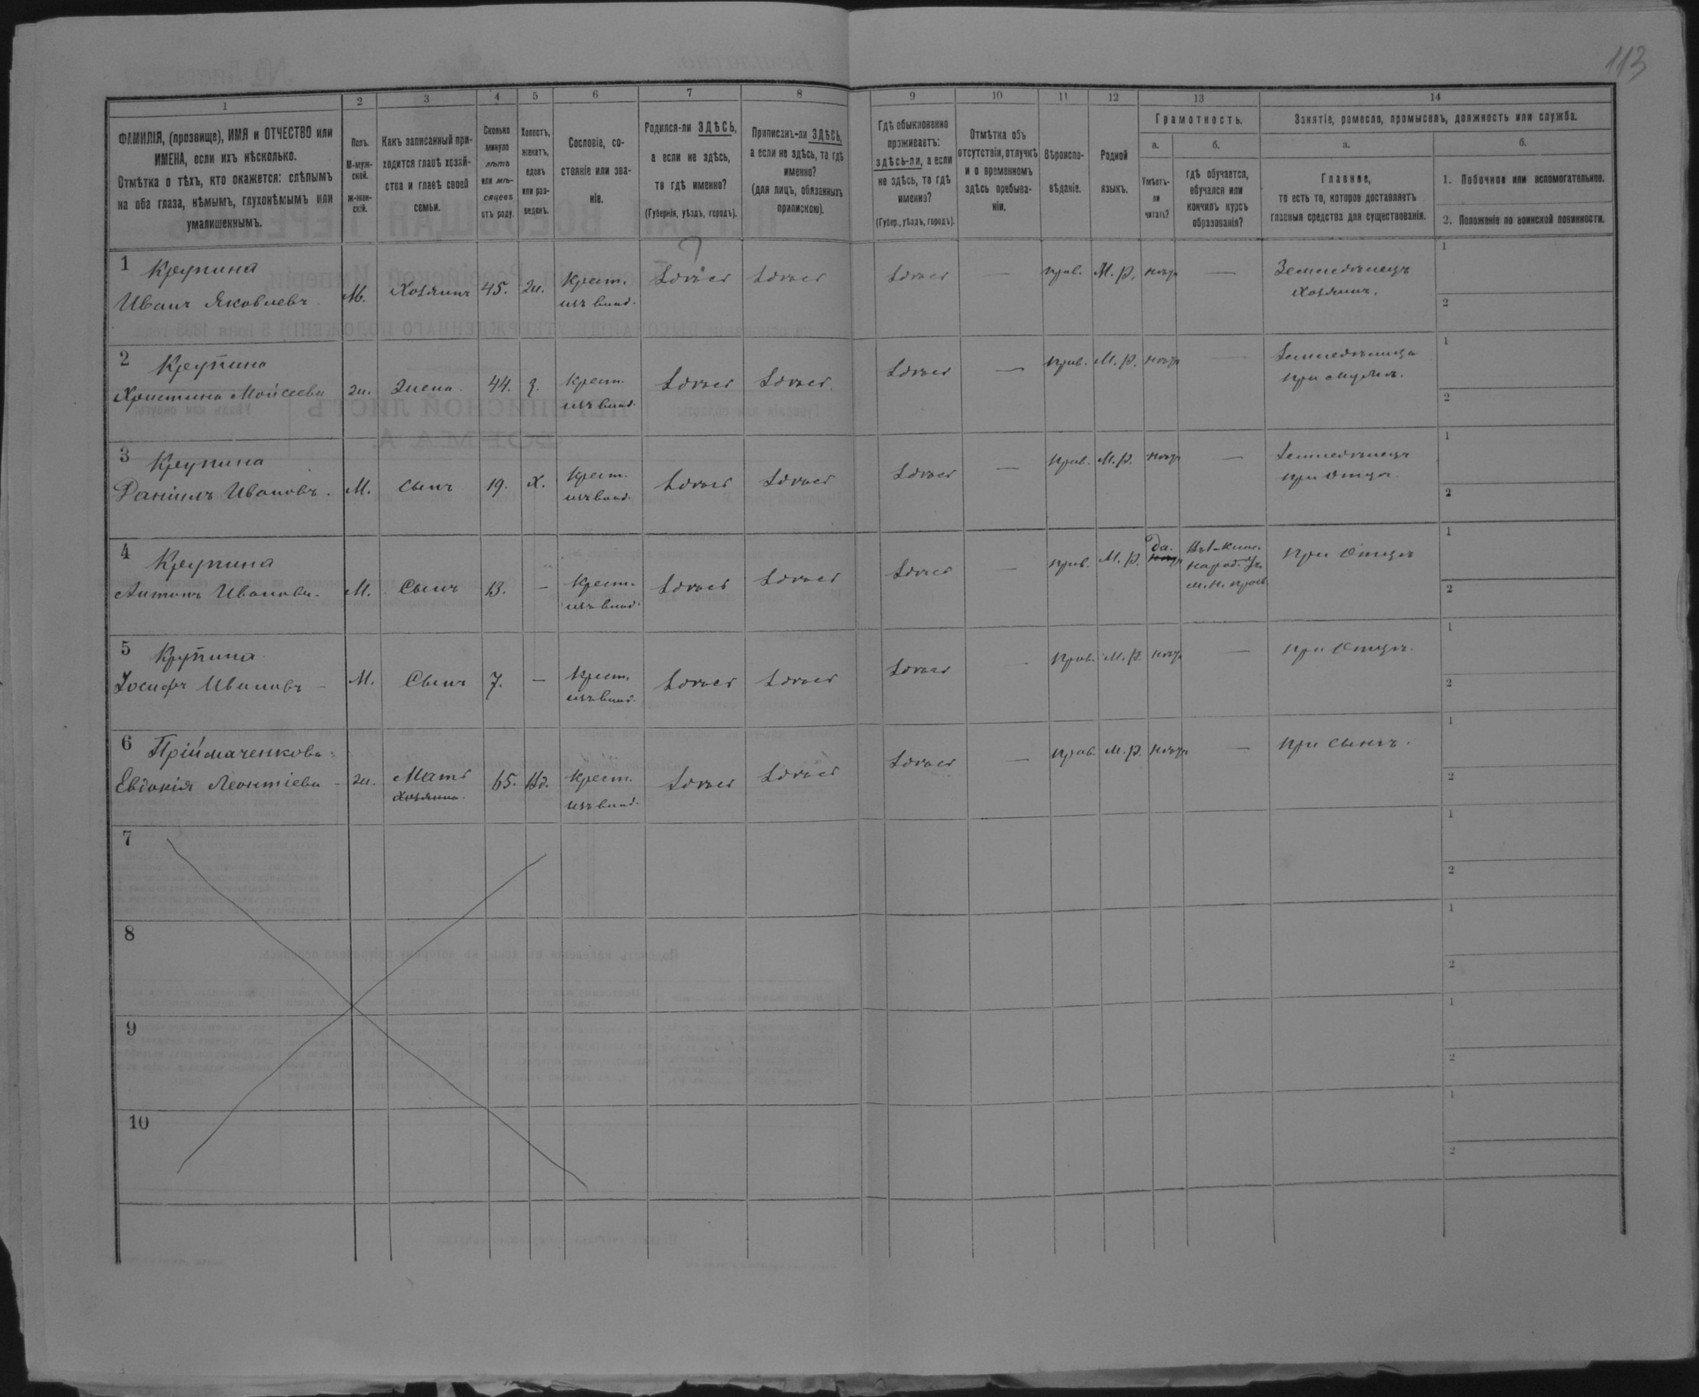 113
1
2
3
4
5
6
7
8
9
10
11
12
13
14
ФАМИЛІЯ, (прозвище), ИМЯ и ОТЧЕСТВО или
ИМЕНА, если ихъ нѣсколько.
Отмѣтка о тѣхъ, кто окажется: слѣпымъ
на оба глаза, нѣмымъ, глухонѣмымъ или
умалишеннымъ.
Полъ.
М-муж-
ской.
Ж-жен-
скій.
Какъ записанный при-
ходится главѣ хозяй-
ства и главѣ своей
семьи.
Сколько
минуло
лѣтъ
или мѣ-
сяцевъ
отъ роду.
Холостъ,
женатъ,
вдовъ
или раз-
веденъ.
Сословіе, со-
стояніе или зва-
ніе.
Родился-ли ЗДѢСЬ,
а если не здѣсь,
то гдѣ именно?
(Губернія, уѣздъ, городъ).
Приписанъ-ли ЗДѢСЬ,
а если не здѣсь, то гдѣ
именно?
(для лицъ, обязанныхъ
припискою).
Гдѣ обыкновенно
проживаетъ:
здѣсь-ли, а если
не здѣсь, то гдѣ
именно?
(Губер., уѣздъ, городъ).
Отмѣтка объ
отсутствіи, отлучкѣ
и о временномъ
здѣсь пребыва-
ніи.
Вѣроиспо-
вѣданіе.
Родной
языкъ.
Грамотность.
а.
Умѣетъ-
ли
читать?
б.
гдѣ обучается,
обучался или
кончилъ курсъ
образованія?
Занятіе, ремесло, промыселъ, должность или служба.
а.
Главное,
то есть то, которое доставляетъ
главныя средства для существованія.
б.
1. Побочное или вспомогательное.
2. Положеніе по воинской повинности.
1 Крупина
Иванъ Яковлевъ М. Хозяинъ 45. ж. Крест. изъ влад. Здѣсь Здѣсь Здѣсь — прав. М. р. нѣтъ — Земледѣлецъ хозяинъ.
1
2
2 Крупина
Христина Мойсеева ж. Жена 44. з. Крест. изъ влад. Здѣсь Здѣсь Здѣсь — прав. М. р. нѣтъ — Земледѣлица при мужѣ.
1
2
3 Крупина
Даніилъ Ивановъ. М. Сынъ 19. х. Крест. изъ влад. Здѣсь Здѣсь Здѣсь — прав. М. р. нѣтъ — Земледѣлецъ при отцѣ.
1
2
4 Крупина
Антонъ Ивановъ. М. Сынъ 13. — Крест. изъ влад. Здѣсь Здѣсь Здѣсь — прав. М. р. да. народ. При отцѣ
1
2
5 Крупина
Іосифъ Ивановъ М. Сынъ 7. — Крест. изъ влад. Здѣсь Здѣсь Здѣсь — прав. М. р. нѣтъ — При отцѣ.
1
2
6 Пріймаченкова
Евдокія Леонтіева ж. Мать хозяина. 65. Вд. Крест. изъ влад. Здѣсь Здѣсь Здѣсь — прав. М. р. нѣтъ — При сынѣ.
1
2
7
1
2
8
1
2
9
1
2
10
1
2